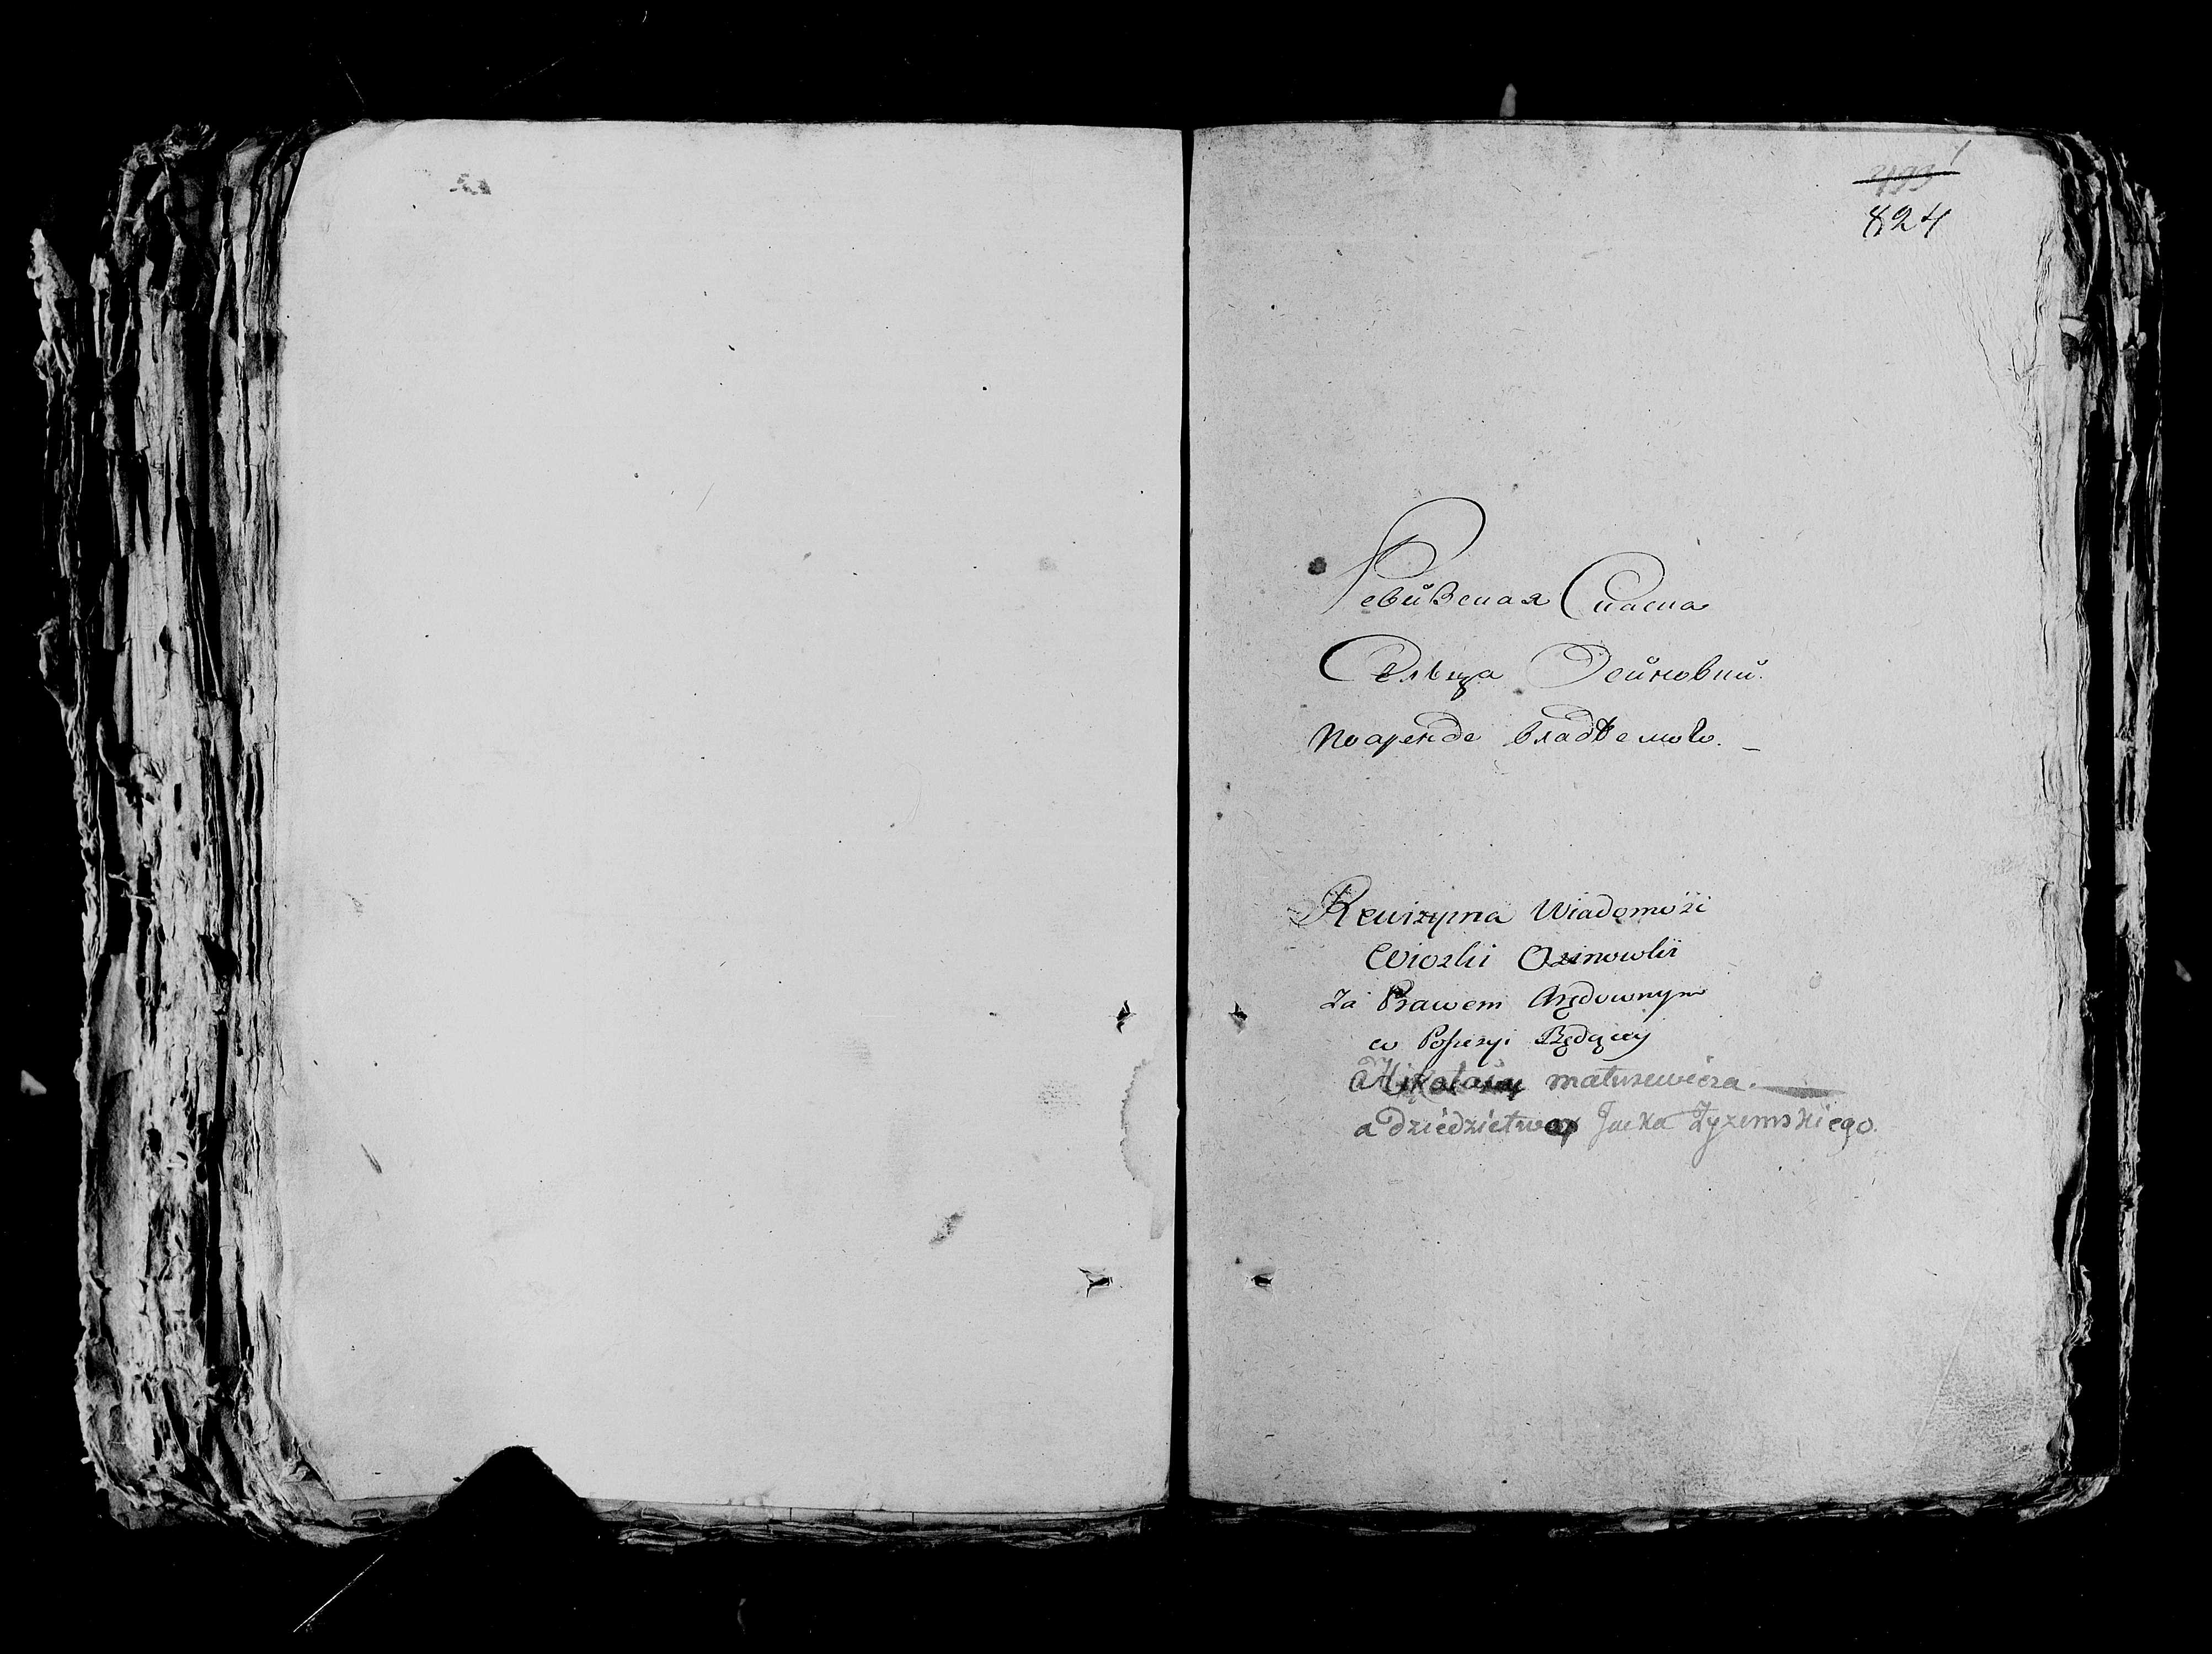 824
Ревизская Сказка
Сельца Дейновки
по аренде владѣемого. –
Rewizyina Wiadomość
Wioski
za Prawem Arędownym
w Possesyi Będącey
Mikołaia matusewicza. –
a dziedzictwa Jacka Zyzemskiego.